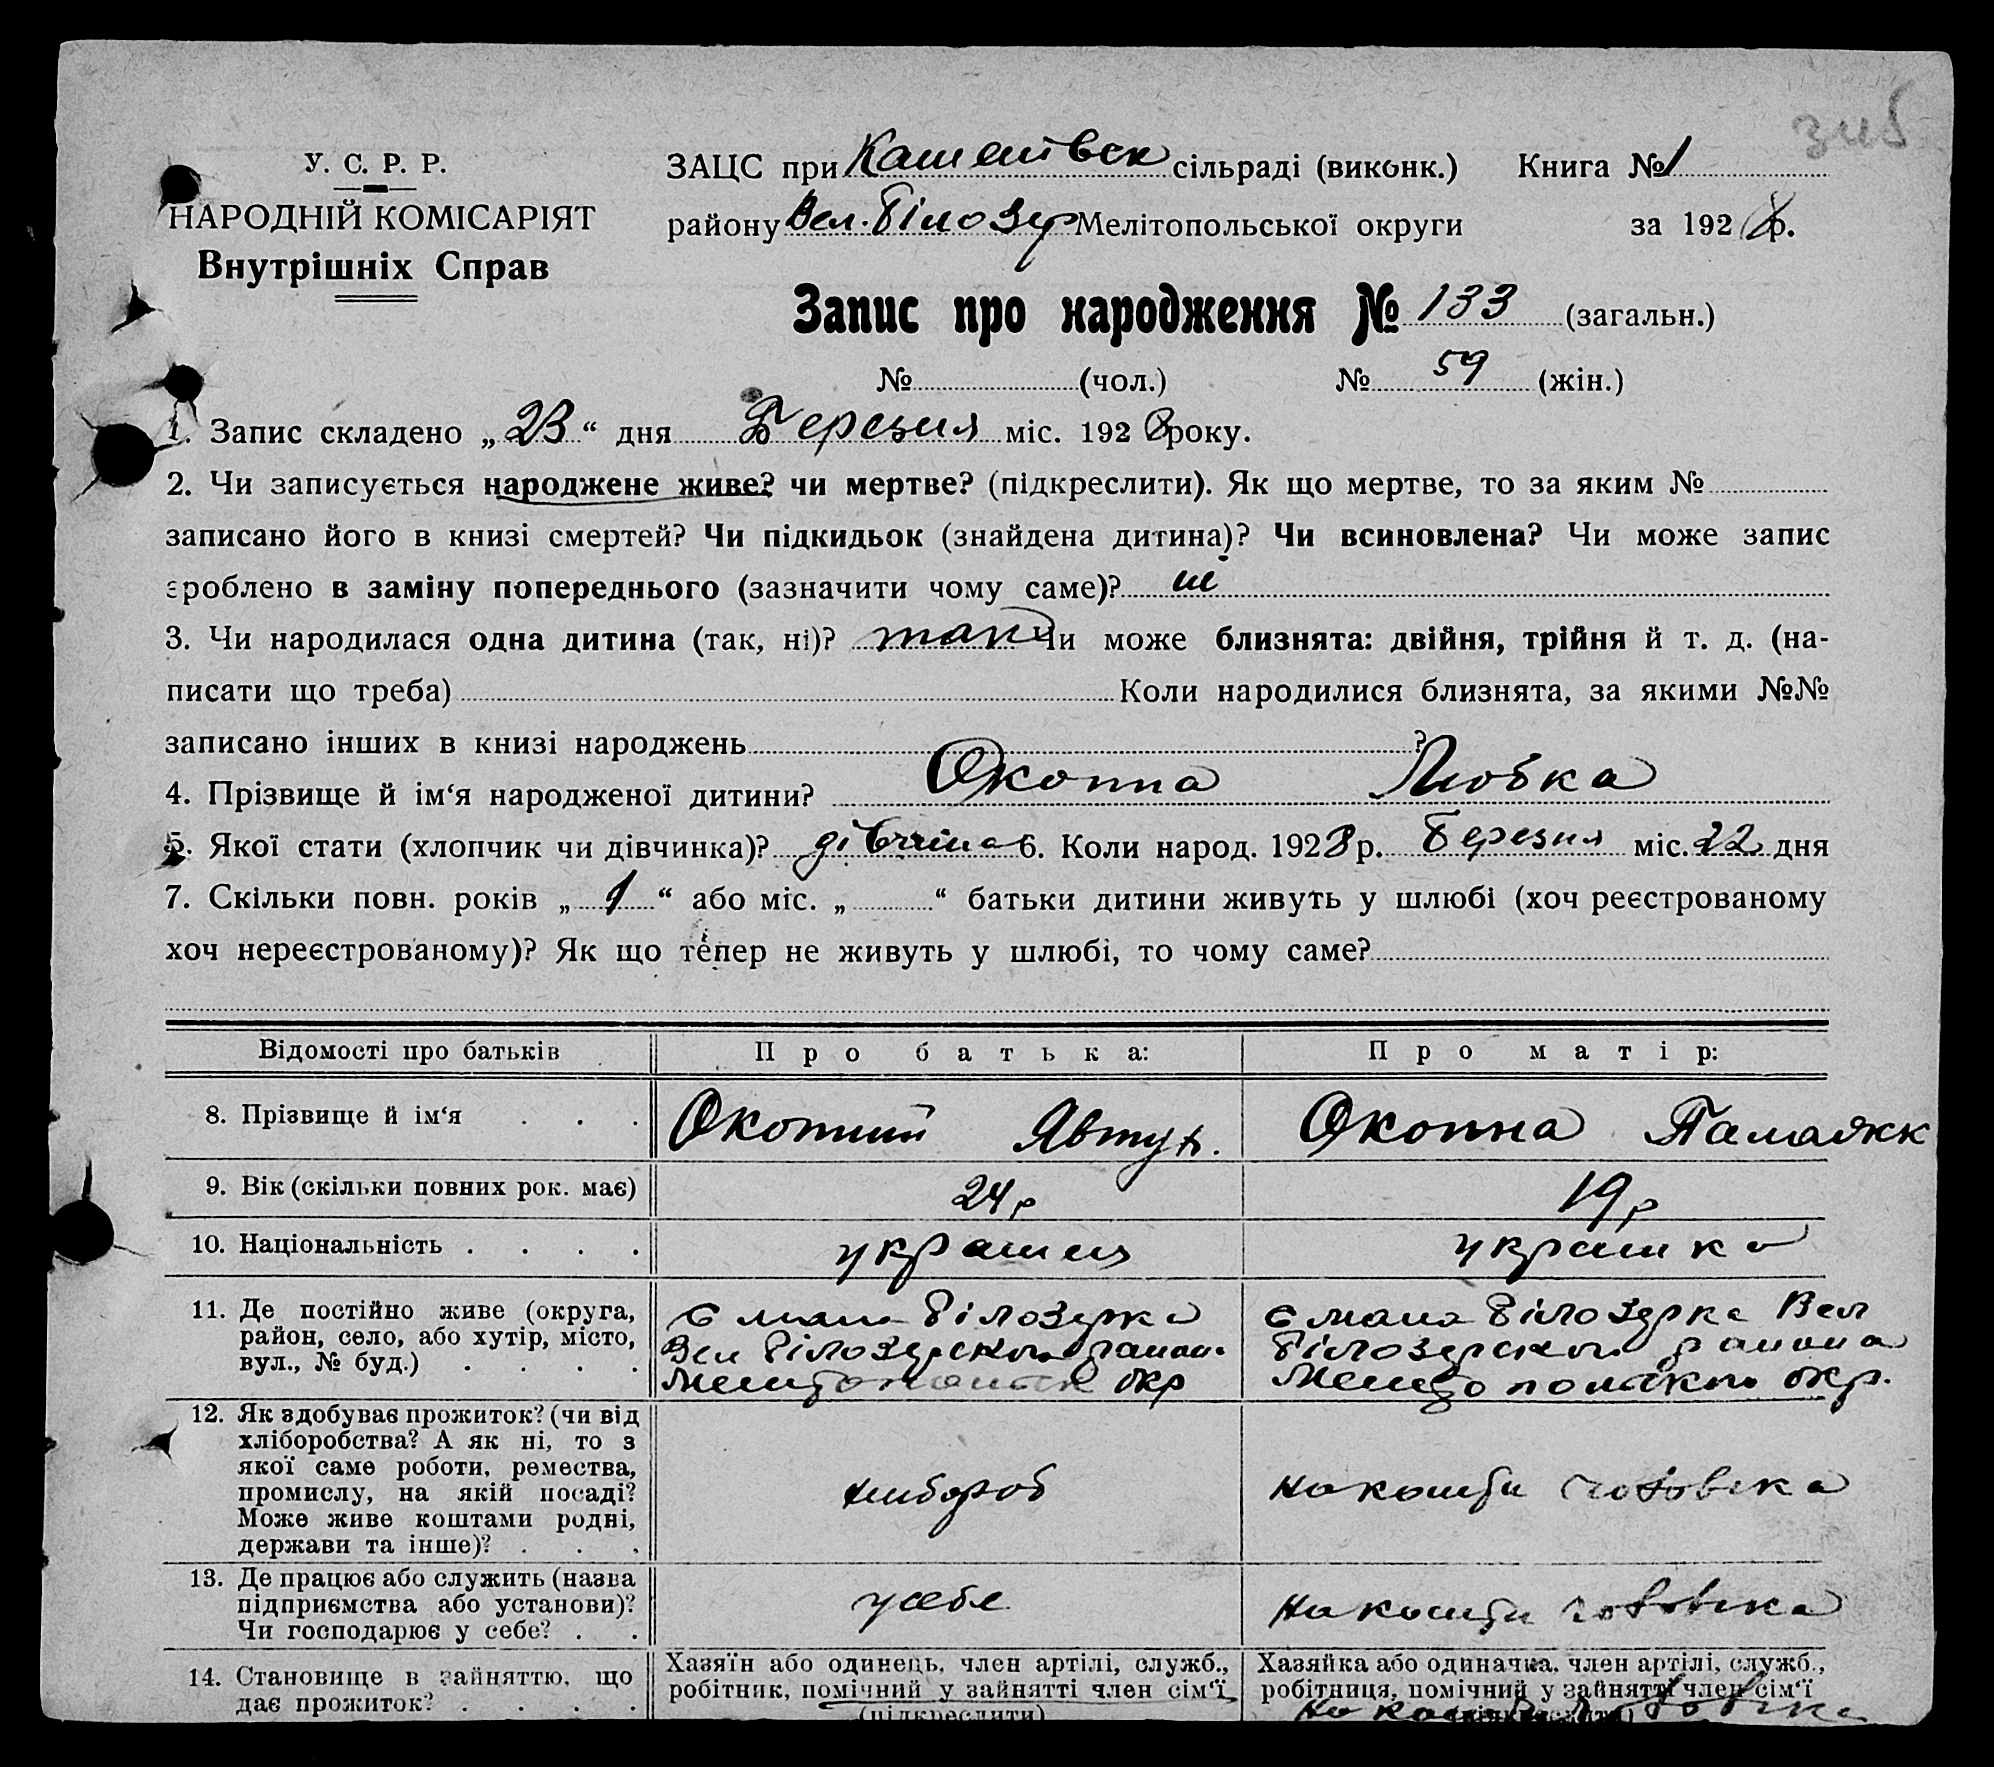 У. С. Р. Р.
НАРОДНІЙ КОМІСАРІЯТ
Внутрішніх Справ
ЗАЦС при сільраді (виконк.) Книга № 1
району Вел. Білозер Мелітопольської округи за 1928 р.
Запис про народження № 133 (загальн.)
№ (чол.) № 59 (жін.)
1. Запис складено „ 23 “ дня Березня міс. 1928 року.
2. Чи записується народжене живе? чи мертве? (підкреслити). Як що мертве, то за яким №
записано його в книзі смертей? Чи підкидьок (знайдена дитина)? Чи всиновлена? Чи може запис
зроблено в заміну попереднього (зазначити чому саме)? ні
3. Чи народилася одна дитина (так, ні)? так Чи може близнята: двійня, трійня й т. д. (на-
писати що треба) Коли народилися близнята, за якими №№
записано інших в книзі народжень ?
4. Прізвище й ім‘я народженої дитини? Окопна Любка
5. Якої стати (хлопчик чи дівчинка)? дівчина 6. Коли народ. 1928 р. Березня міс. 22 дня
7. Скільки повн. років „ 1 “ або міс. „ “ батьки дитини живуть у шлюбі (хоч реєстрованому
хоч нереєстрованому)? Як що тепер не живуть у шлюбі, то чому саме?
Відомості про батьків Про батька: Про матір:
8. Прізвище й ім‘я . . . Окопний Явтух. Окопна Палажк
9. Вік (скільки повних рок. має) 24 р 19 р
10. Національність . . . . українец українка
11. Де постійно живе (округа,
район, село, або хутір, місто,
вул., № буд.) . . . .
Білозерка
Вел Білозерского район.
Мелітопольск окр
Білозерка Вел
Білозерского района
Мелітопольско окр.
12. Як здобуває прожиток? (чи від
хліборобства? А як ні, то з
якої саме роботи, ремества,
промислу, на якій посаді?
Може живе коштами родні,
держави та інше)? . . .
хлибороб
на кошти чоловіка
13. Де працює або служить (назва
підприємства або установи)?
Чи господарює у себе? . .
у себе
на кошти чоловіка
14. Становище в зайняттю, що
дає прожиток? . . . .
Хазяїн або одинець, член артілі, служб.,
робітник, помічний у зайнятті член сім‘ї
(підкреслити)
Хазяйка або одиначка, член артілі, служб.,
робітниця, помічний у зайнятті член сім‘ї
на кошти чоловіка